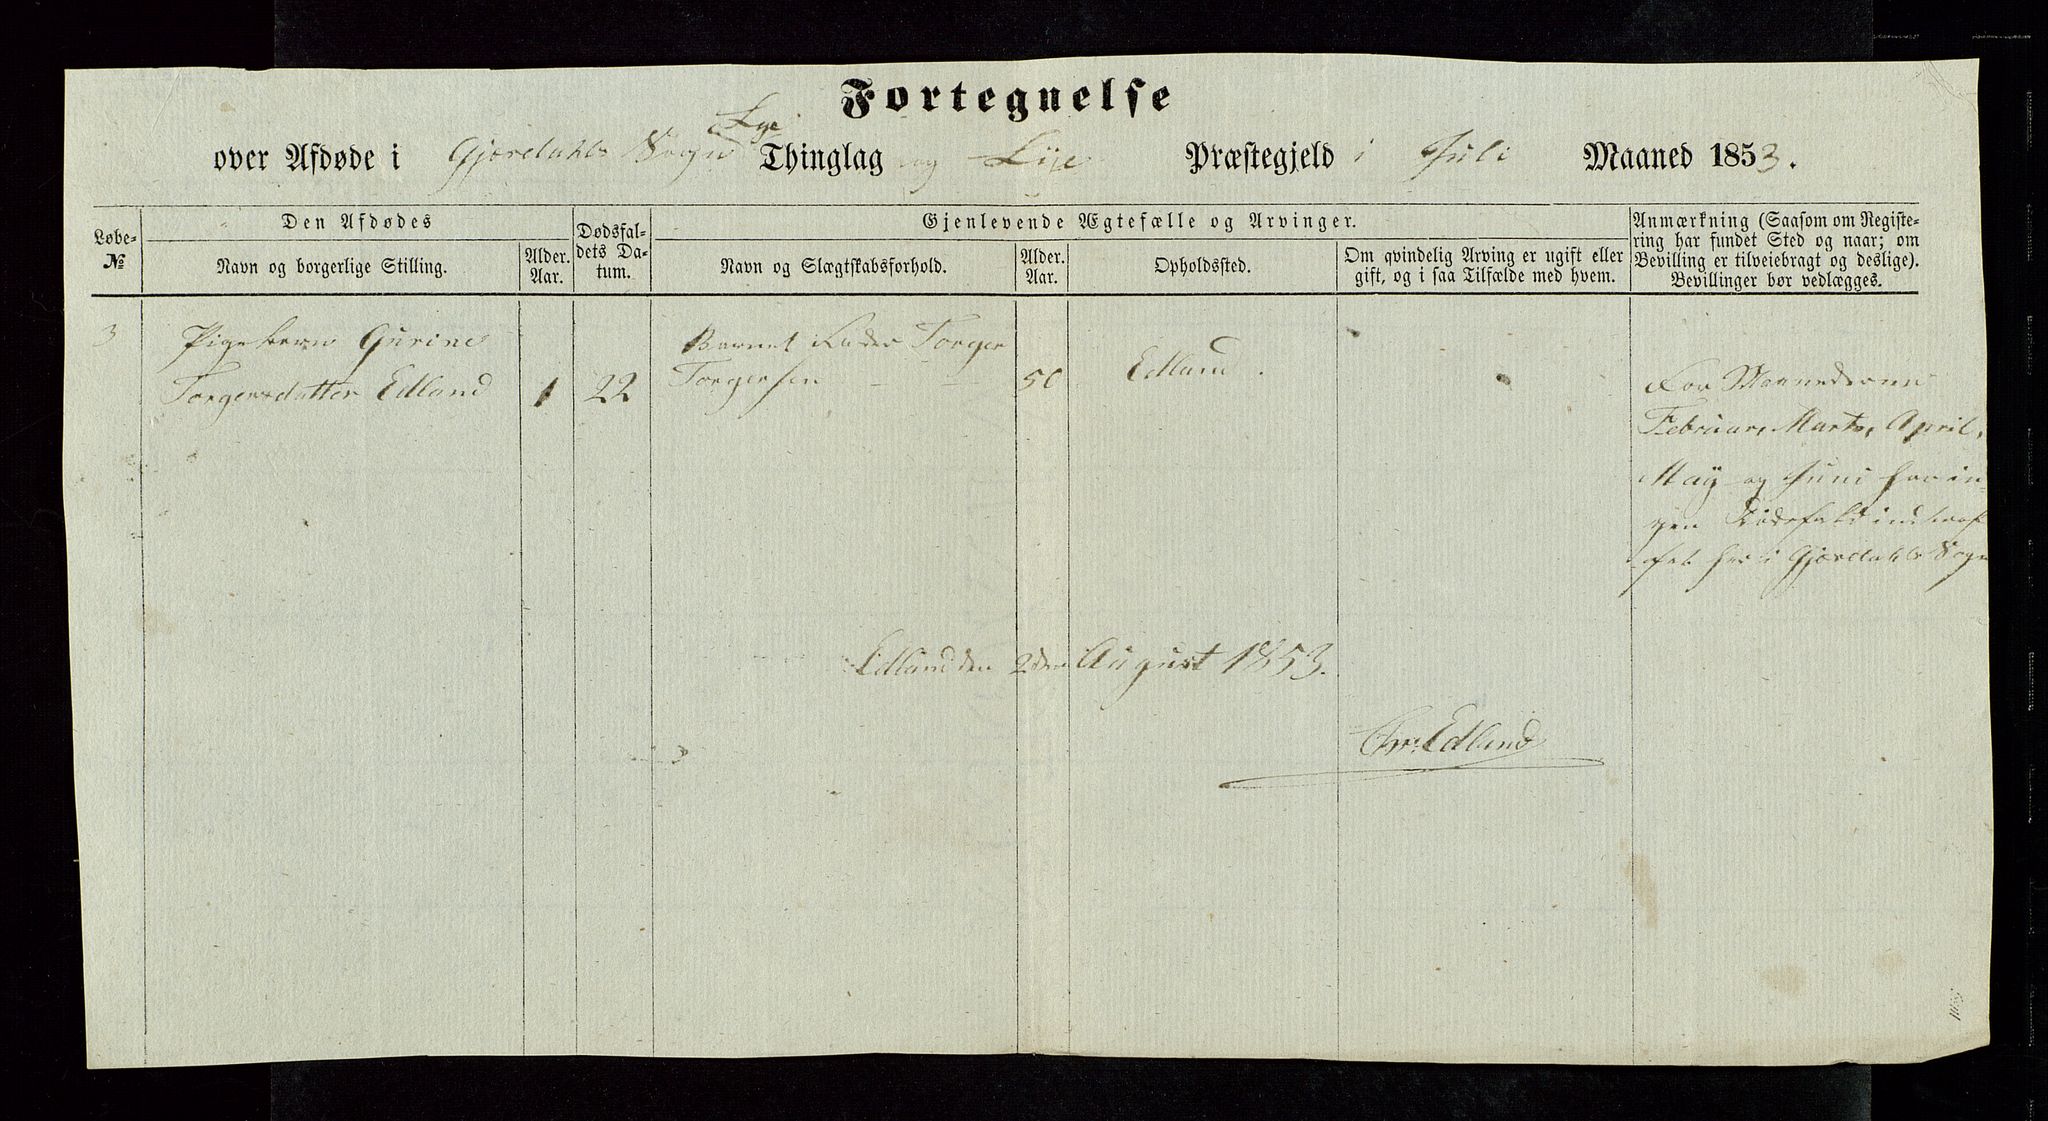 Fortegnelse
Lye
over Afdøde i Gjæsdahls Sogn Thinglag og Lije Præstegjeld i Juli Maaned 1853.
Løbe-
No
Den Afdødes
Navn og borgerlige Stilling.
Alder.
Aar.
Dødsfal-
dets Da-
tum.
Gjenlevende Ægtefælle og Arvinger.
Navn og Slægtskabsforhold.
Alder.
Aar.
Opholdssted.
Om qvindelig Arving er ugift eller
gift, og i saa Tilfælde med hvem.
Anmærkning (Saasom om Registe-
ring har fundet Sted og naar; om
Bevilling er tilveiebragt og deslige).
Bevillinger bør vedlægges.
3 Pigebarn Gurine
Torgersdatter Edland 1 22
Barnet Fader Torger
Torgersen 50
Edland.
For Maanederne
Februar, Marts, April,
May og Juni har in-
gen Dødsfald indtraf
fet her i Gjæsdahls Sogn
Edland den 2den August 1853.
Chr. Edland